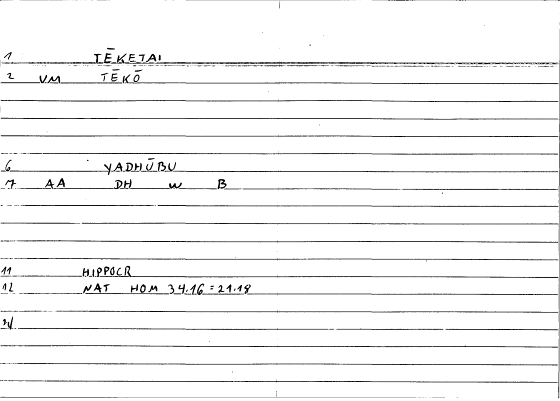 1 TĒKETAI
2 VM TĒKŌ
6 YADHŪBU
7 AA DH W B
11 HIPPOCR
12 NAT HOM 34.16=21.18